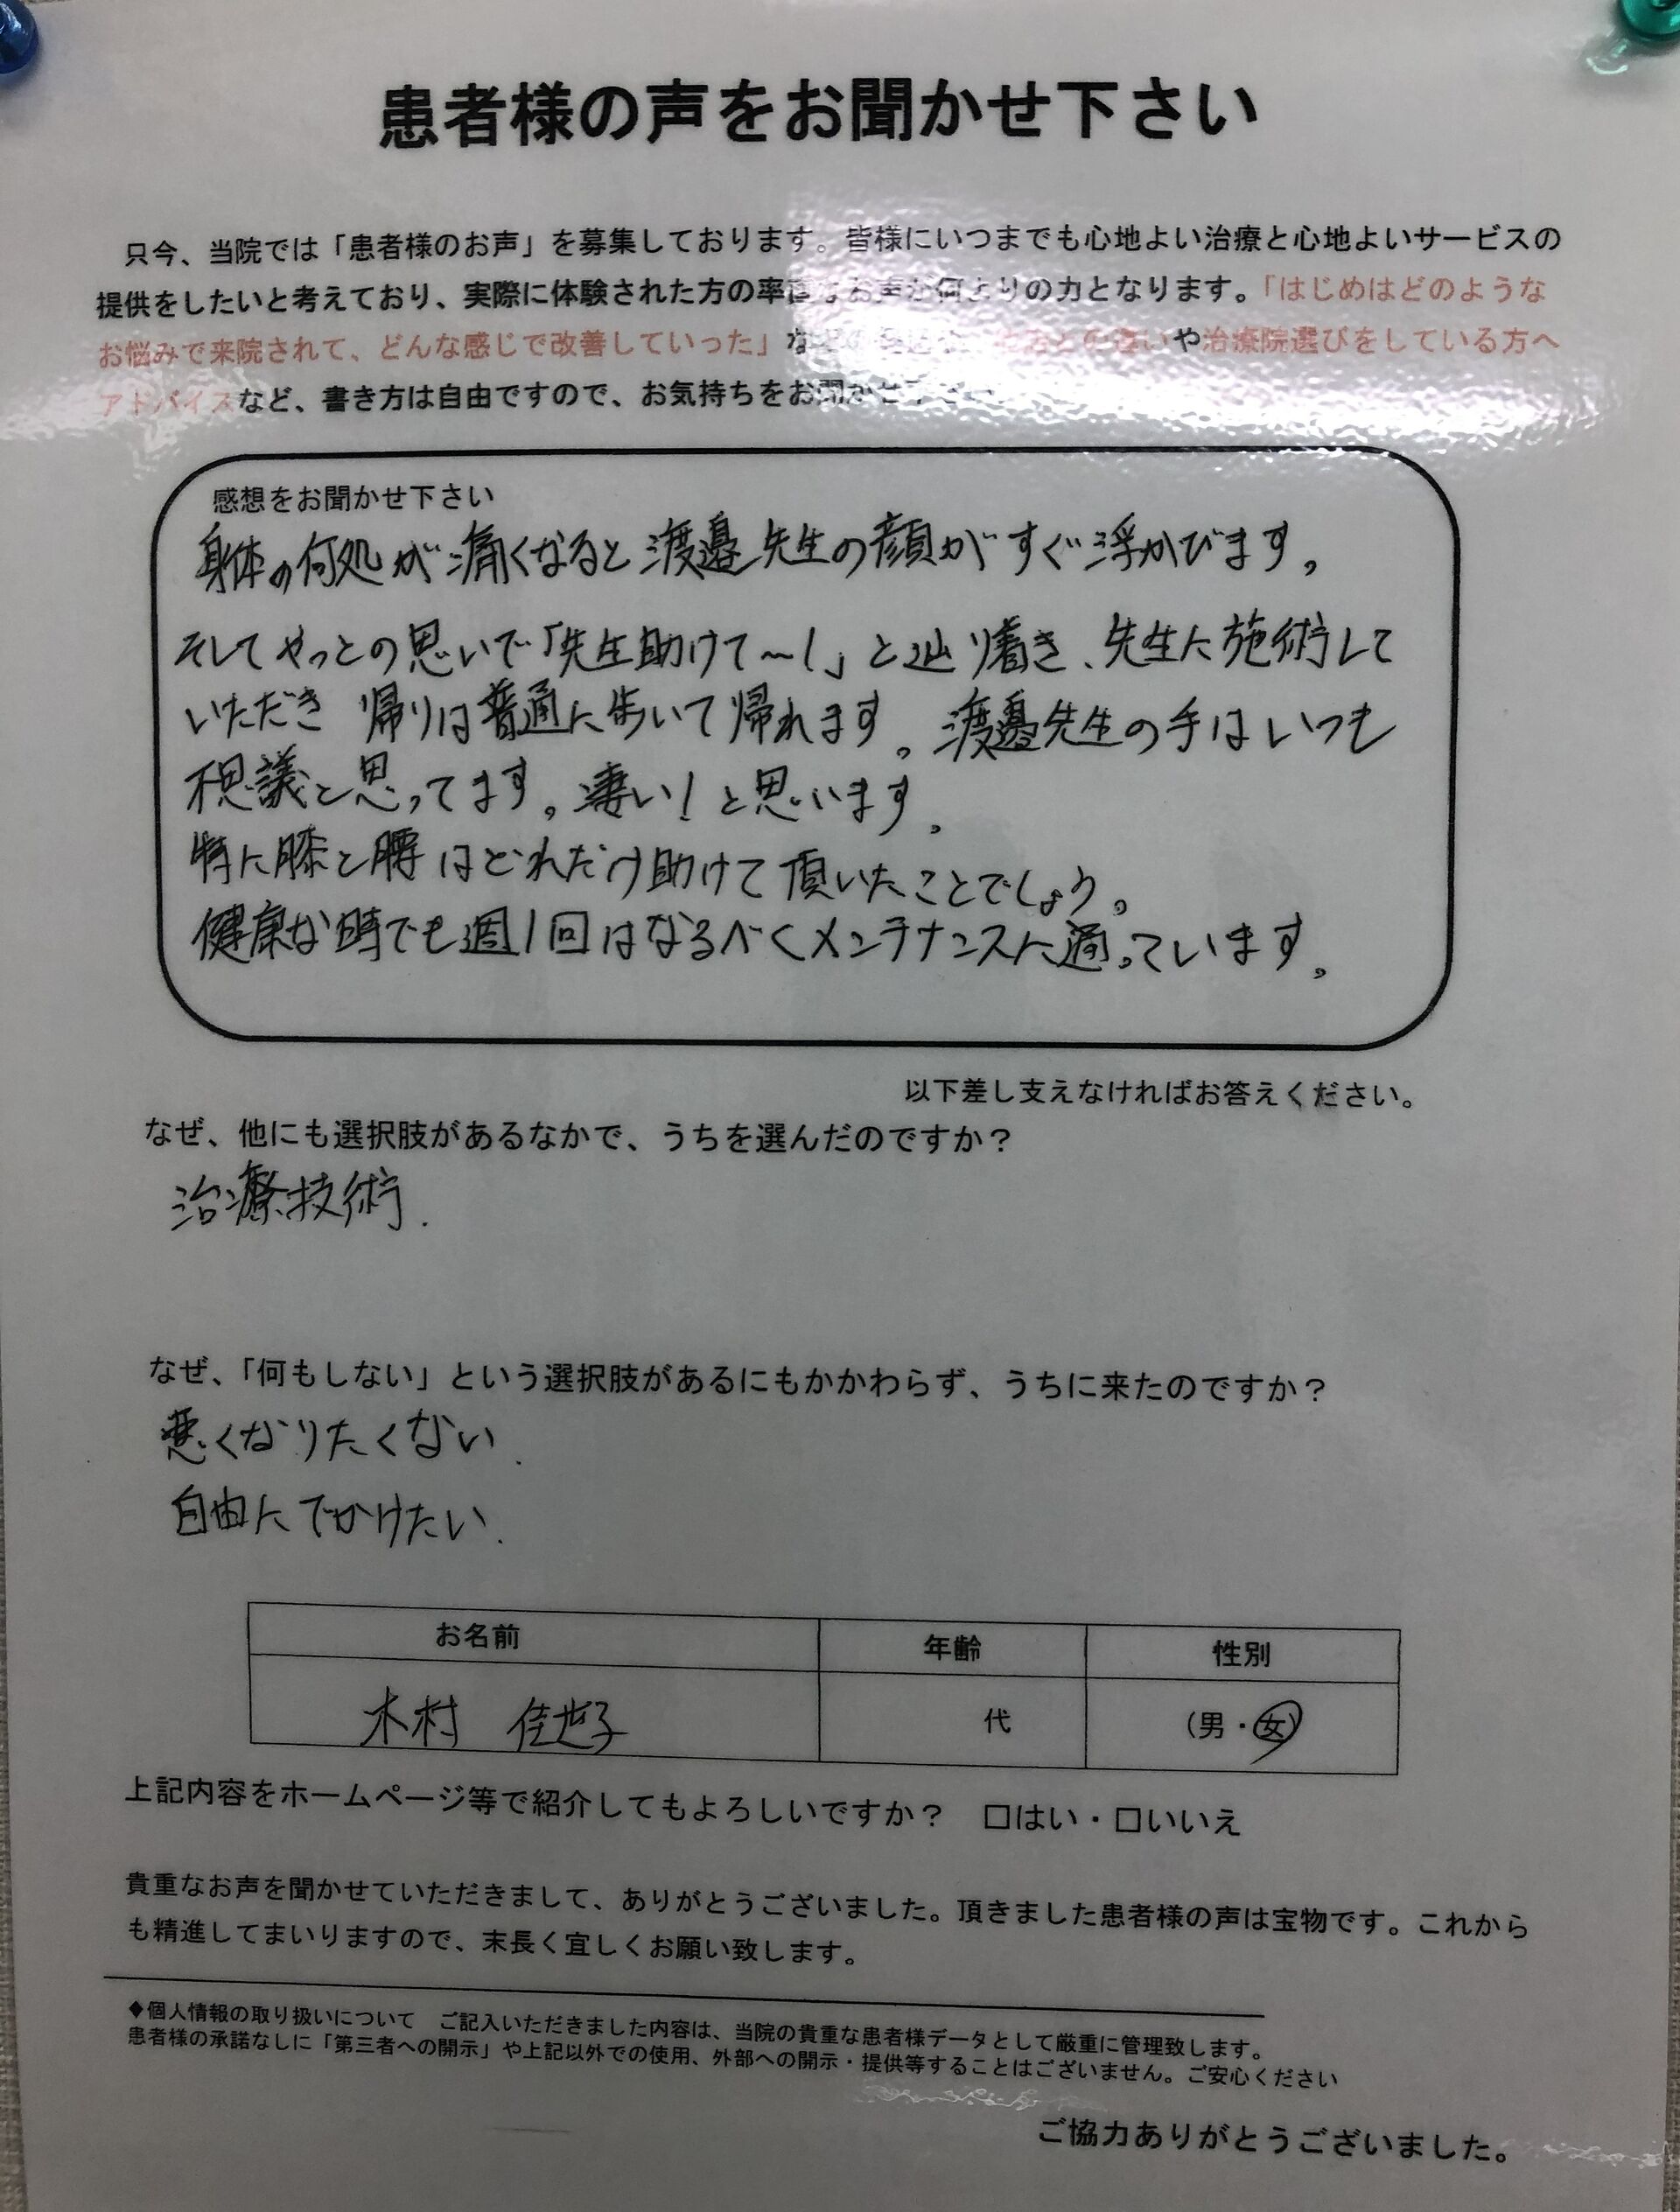 患者様の声をお聞かせ下さい
只今、当院では「患者様のお声」を募集しております。皆様にいつまでも心地よい治療と心地よいサービスの
提供をしたいと考えており、実際に体験された方の率直なお声が何よりの力となります。「はじめはどのような
お悩みで来院されて、どんな感じで改善していった」などの や治療院選びをしている方へ
アドバイスなど、書き方は自由ですので、お気持ちをお聞かせ下さい
感想をお聞かせ下さい
身体の何処が痛くなると渡邉先生の顔がすぐ浮かびます。
そしてやっとの思いで「先生助けて〜!」と辿り着き、先生に施術して
いただき 帰りは普通に歩いて帰れます。渡邉先生の手はいつも
不思議と思ってます。凄い!と思います。
特に膝と腰はどれだけ助けて頂いたことでしょう。
健康な時でも週1回はなるべくメンテナンスに通っています。
以下差し支えなければお答えください。
なぜ、他にも選択肢があるなかで、うちを選んだのですか？
治療技術.
なぜ、「何もしない」という選択肢があるにもかかわらず、うちに来たのですか？
悪くなりたくない.
自由にでかけたい.
お名前 年齢 性別
木村 佳世子 代 (男・女)
上記内容をホームページ等で紹介してもよろしいですか？ □はい・□いいえ
貴重なお声を聞かせていただきまして、ありがとうございました。頂きました患者様の声は宝物です。これから
も精進してまいりますので、末長く宜しくお願い致します。
◆個人情報の取り扱いについて ご記入いただきました内容は、当院の貴重な患者様データとして厳重に管理致します。
患者様の承諾なしに「第三者への開示」や上記以外での使用、外部への開示・提供等することはございません。ご安心ください
ご協力ありがとうございました。